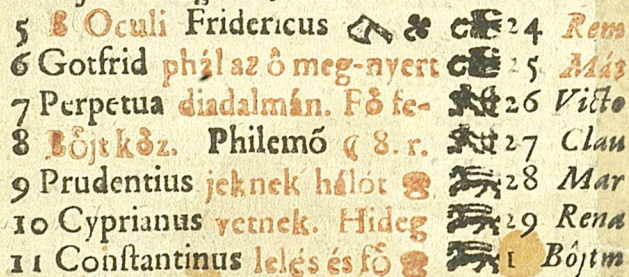 5 B Oculi Fridericus 24 Rem
6 Gotfrid phál az ő meg-nyert 25
7 Perpetua diadalmán. Fő fe- 26 Victo
8 Bőjt köz. Philemõ ☾ 8. r. 27 Clau
9 Prudentius jeknek hálót 28 Mar
10 Cyprianus vetnek. Hideg 29 Rena
11 Conſtantinus lelés és fő 1 Bôjtm